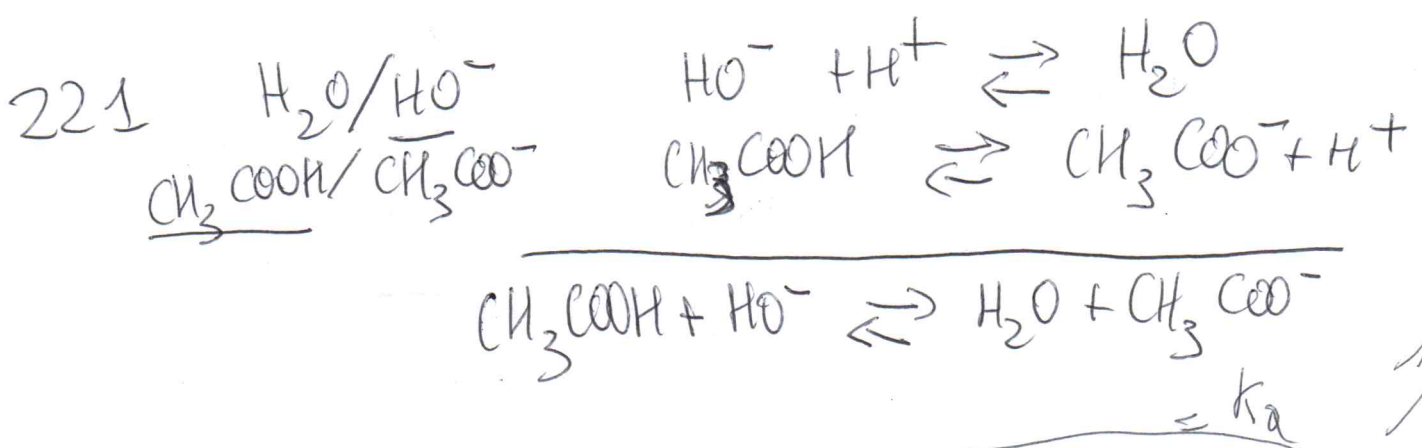 221 H₂O/HO⁻ HO⁻ + H⁺ ⇌ H₂O
CH₃COOH/CH₃COO⁻ CH₃COOH ⇌ CH₃COO⁻ + H⁺
CH₃COOH + HO⁻ ⇌ H₂O + CH₃COO⁻
= Ka